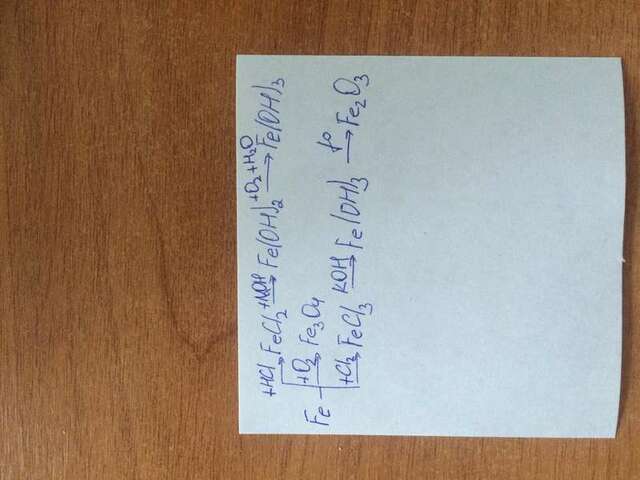 +HCl → FeCl₂ +NaOH → Fe(OH)₂ +O₂+H₂O → Fe(OH)₃
Fe +O₂ → Fe₃O₄
+Cl₂ → FeCl₃ KOH → Fe(OH)₃ t° → Fe₂O₃